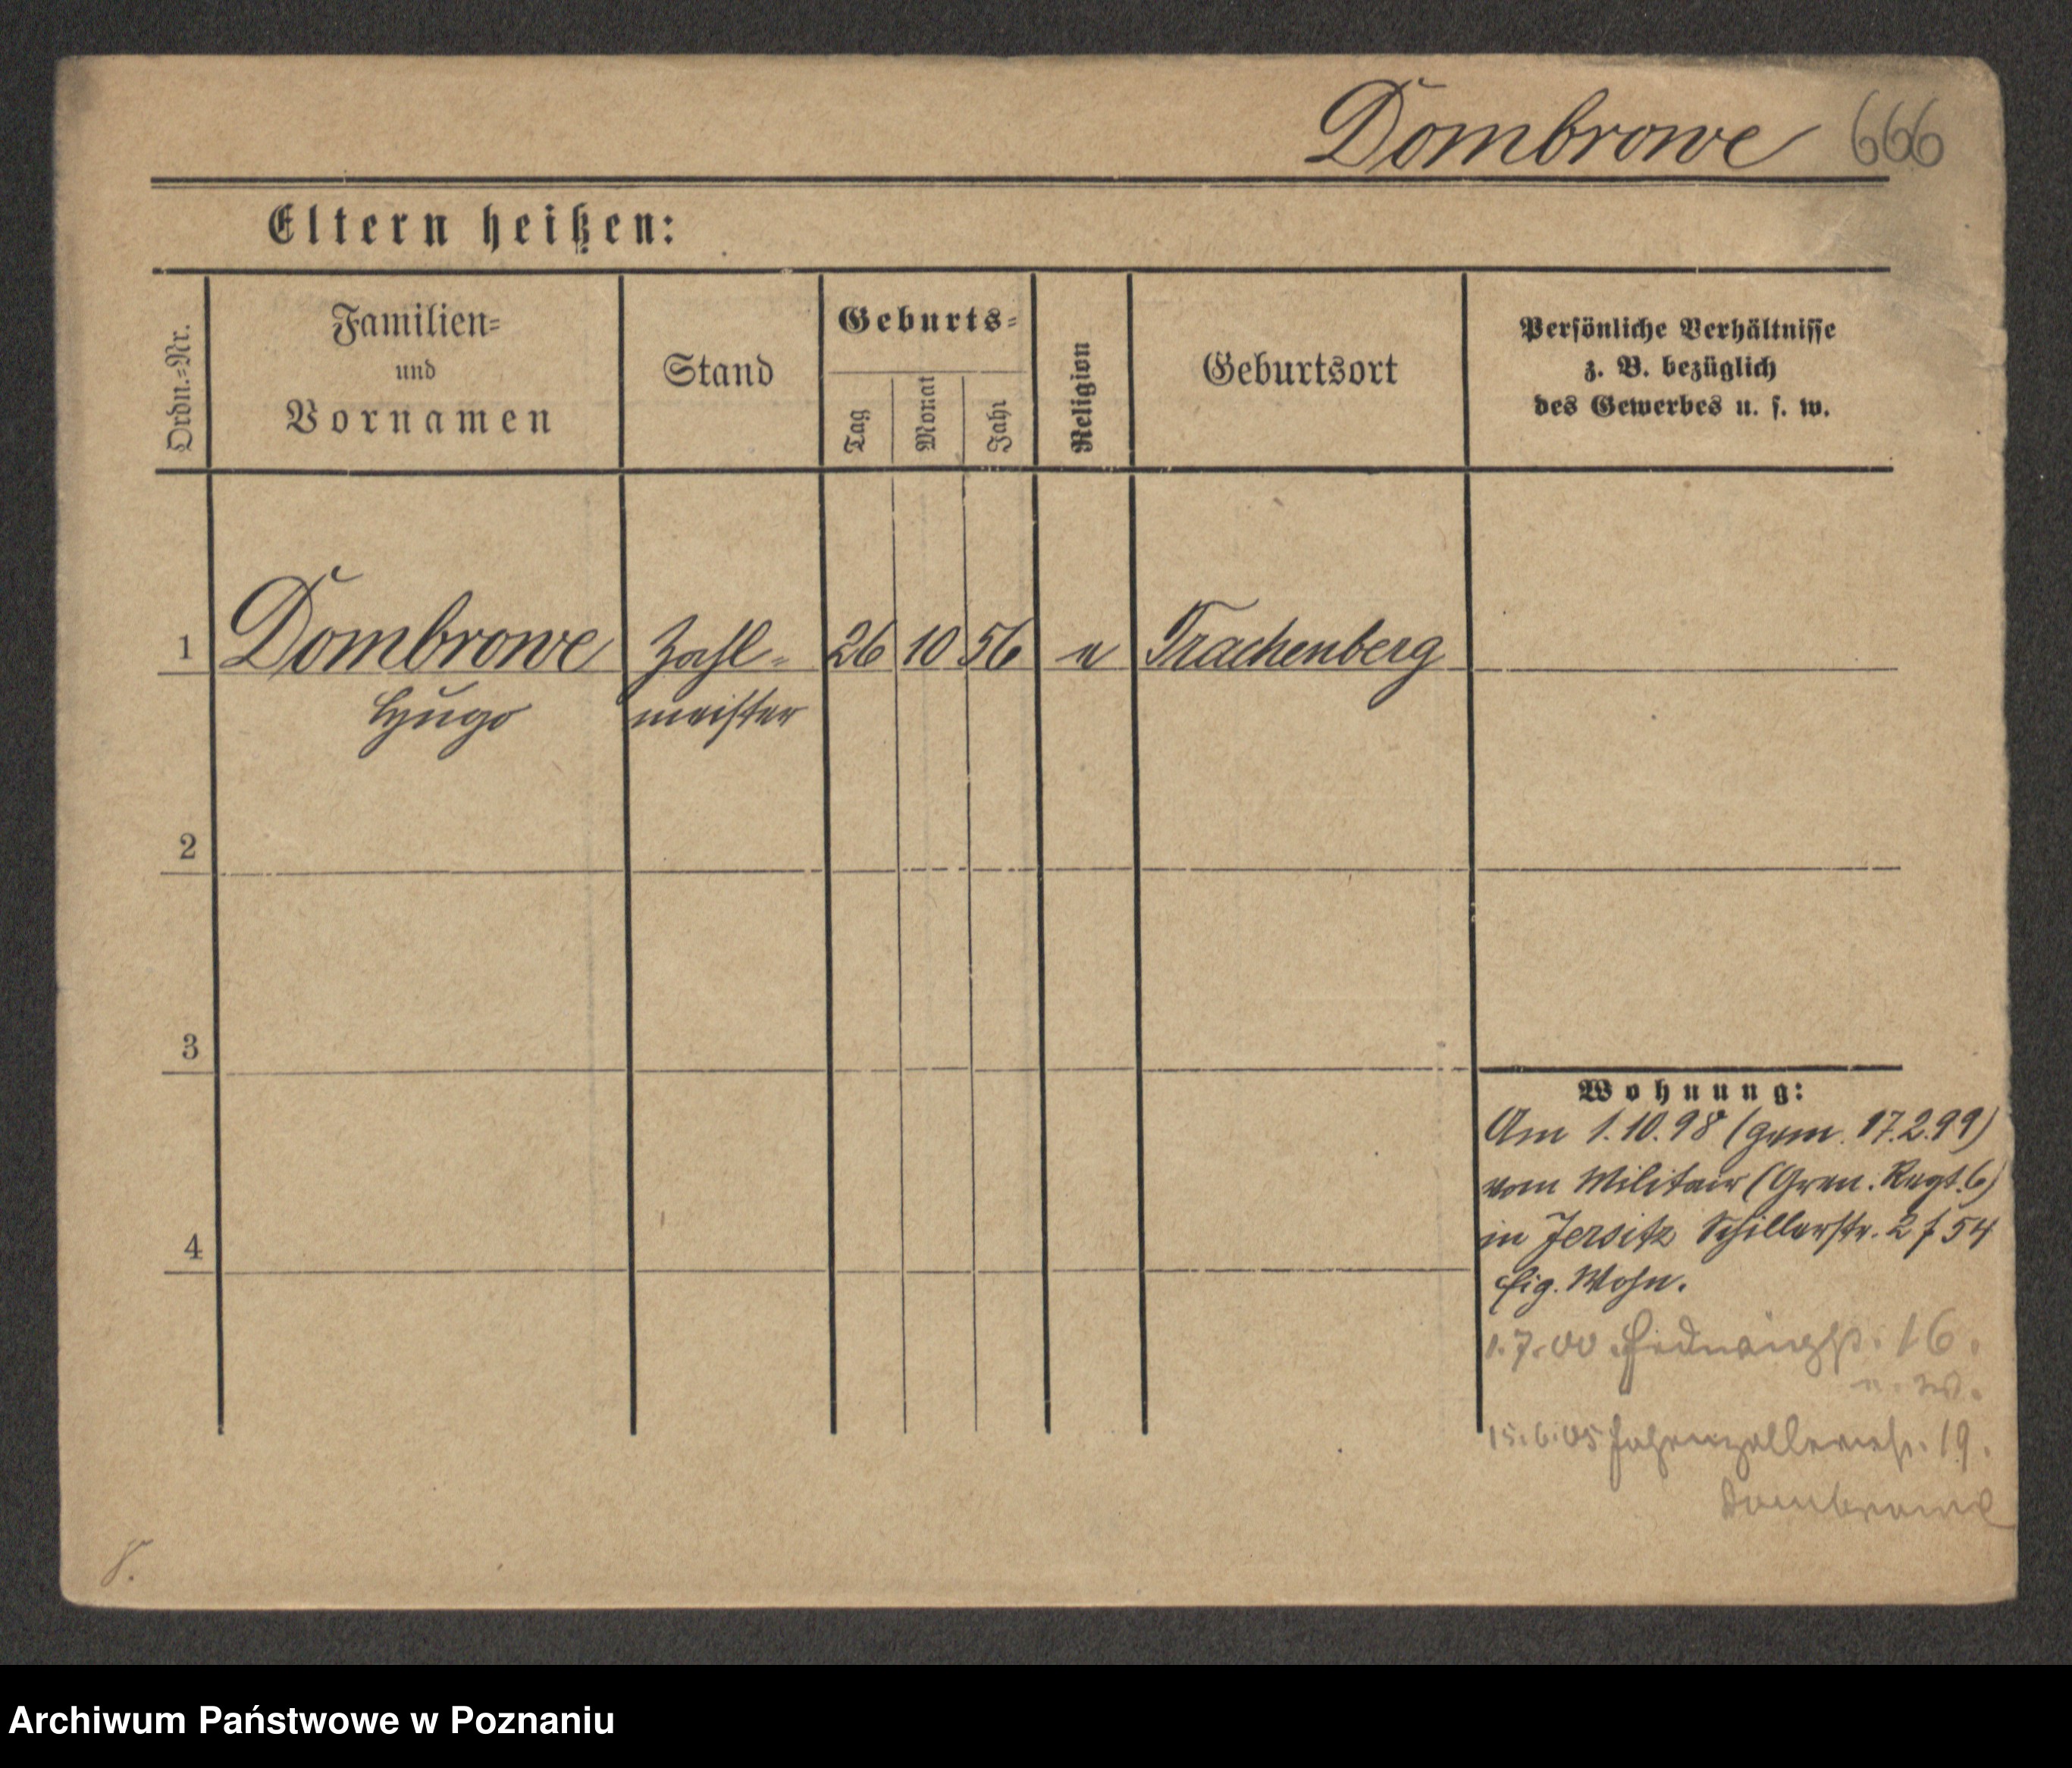 Dombrowe 666
Eltern heißen:
Ordn.-Nr.
Familien-
und
Vornamen
Stand
Geburts-
Tag
Monat
Jahr
Religion
Geburtsort
Persönliche Verhältnisse
z. B. bezüglich
des Gewerbes u. s. w.
1 Dombrowe Zahl- 26 10 56 Trachenberg
Hugo meister
2
3
4
Wohnung:
Am 1.10.98 (gem. 17.2.99)
vom Militair (Gren. Regt. 6)
in Jersitz Schillerstr. 2 f 54
Eig. Wohn.
1.7.00 16.
15.6.05 Hohenzollernstr. 19.
Dombrowe
Archiwum Państwowe w Poznaniu